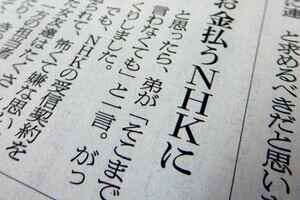 運」と求めるべきだと思い
お金払うNHKに
と思ったら、弟が「そこまで
言わなくても」と一言。がっ
くりしました。
でも、NHKの受信契約を
られて、怖くて嫌な思い
友達はたくさ
の相談